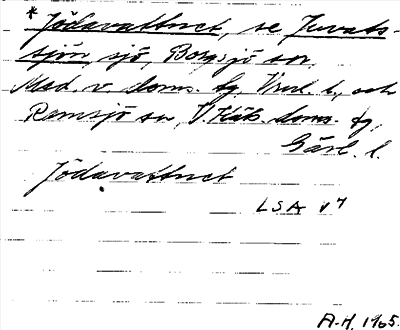 * Jödavattnet, se Juvats-
sjön, sjö, Borgsjö sn,
Med. v. doms. tg, Vnrl. l., och
Ramsjö sn, V. Häls. doms. tg,
Gävl. l.
Jödavattnet
LSA v 7
A.H. 1965.